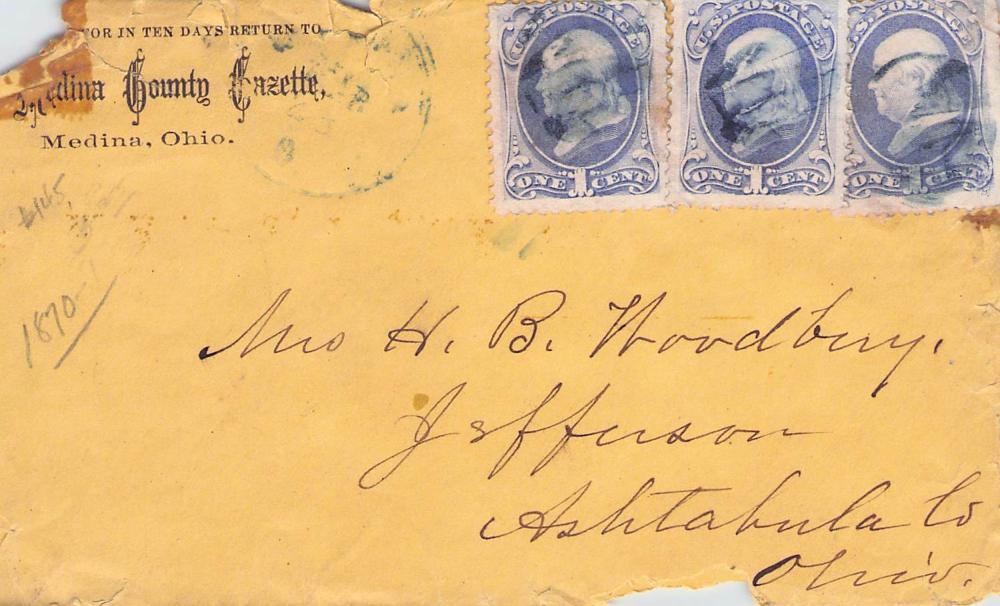 OR IN TEN DAYS RETURN TO
Medina County Gazette,
Medina, Ohio.
U.S. POSTAGE
ONE 1 CENT
U.S. POSTAGE
ONE 1 CENT
U.S. POSTAGE
ONE 1 CENT
1870
Mrs H. B. Woodbury.
Jefferson
Ashtabula Co
Ohio.